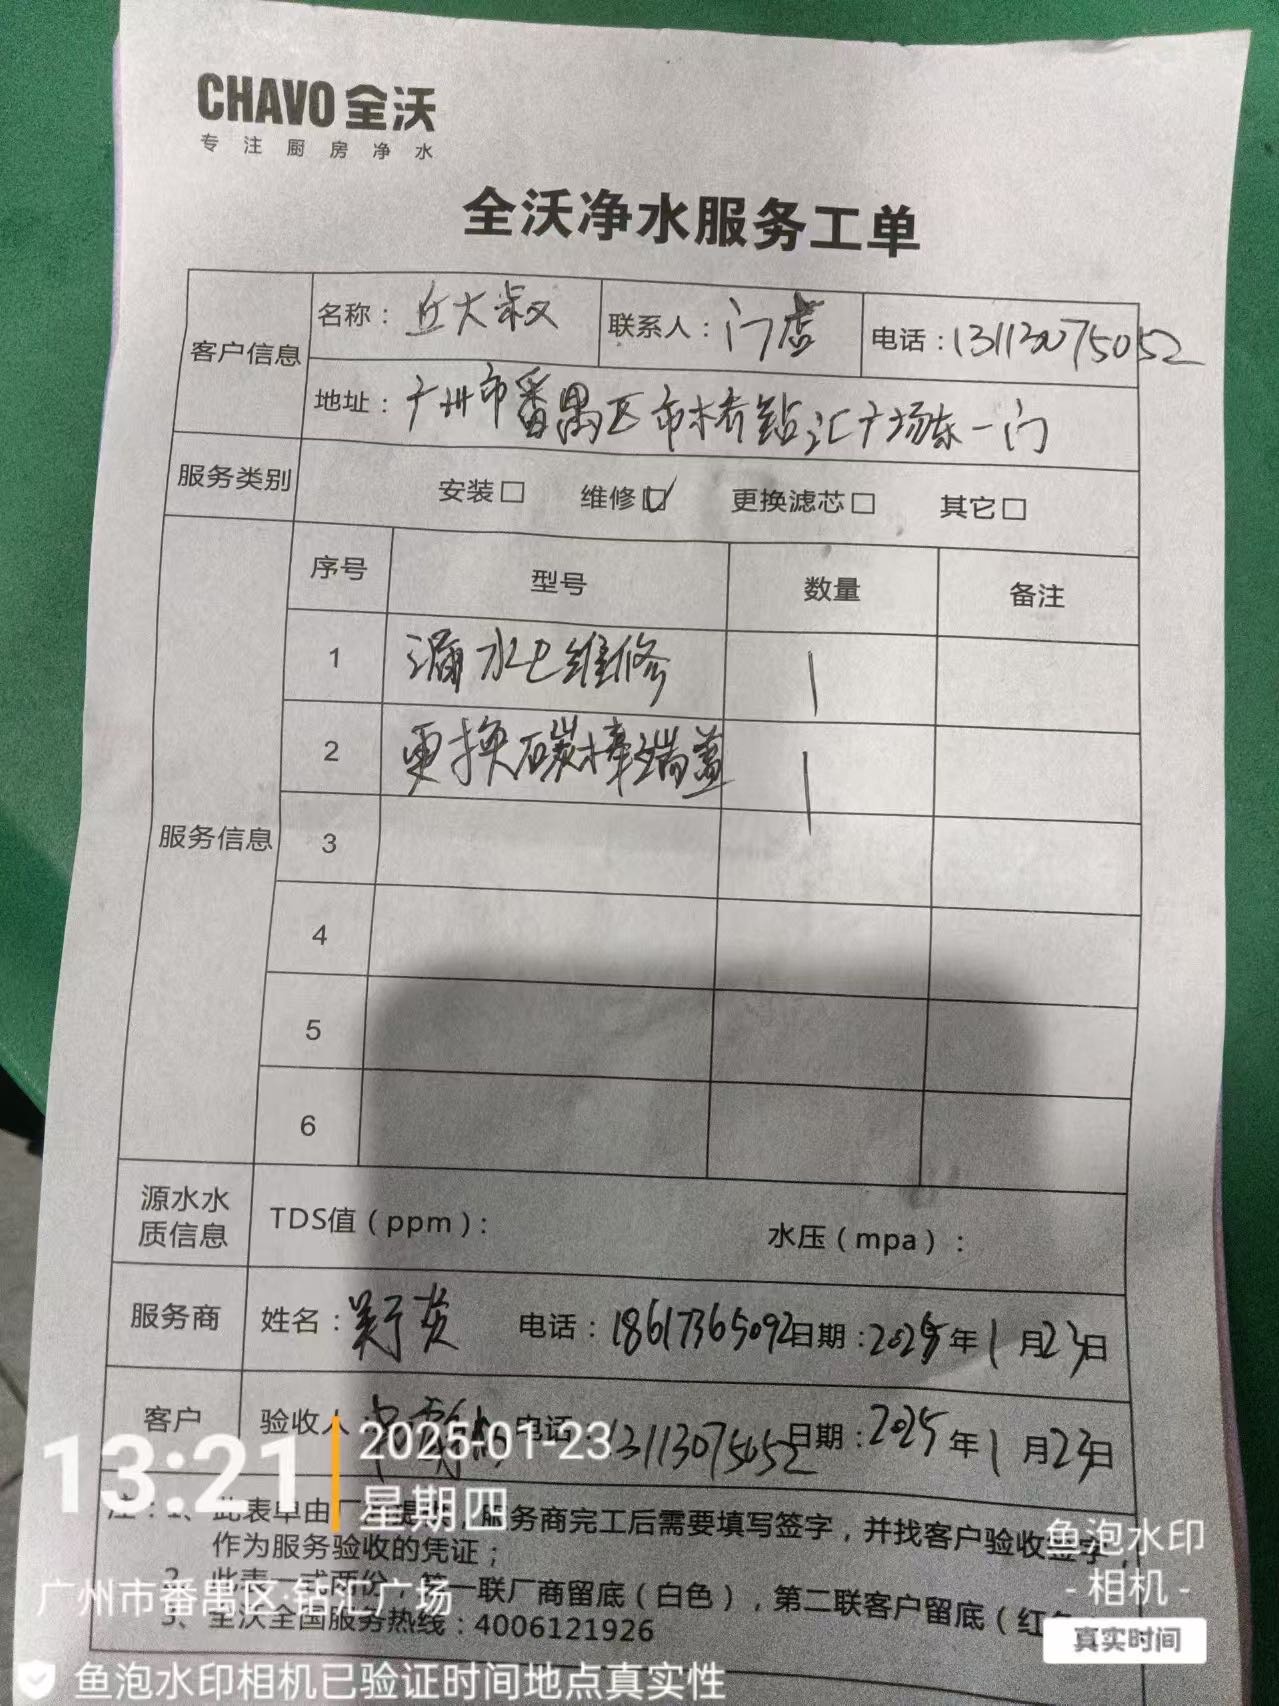 CHAVO 全沃
专注厨房净水
全沃净水服务工单
客户信息
名称：丘大叔 联系人：门店 电话：13113075052
地址：广州市番禺区市桥钻汇广场东一门
服务类别 安装□ 维修☑ 更换滤芯□ 其它□
服务信息
序号 型号 数量 备注
1 漏水 维修 1
2 更换碳棒端盖 1
3
4
5
6
源水水质信息 TDS值（ppm）： 水压（mpa）：
服务商 姓名： 电话：18617365092 日期：2025年1月23日
客户 验收人 电话 13113075052 日期：2025年1月23日
注：1、此表单由厂 提 ，服务商完工后需要填写签字，并找客户验收签字，
作为服务验收的凭证；
2、此表一式两份，第一联厂商留底（白色），第二联客户留底（红
3、全沃全国服务热线：4006121926
13:21
2025-01-23
星期四
广州市番禺区·钻汇广场
鱼泡水印相机已验证时间地点真实性
鱼泡水印
- 相机 -
真实时间